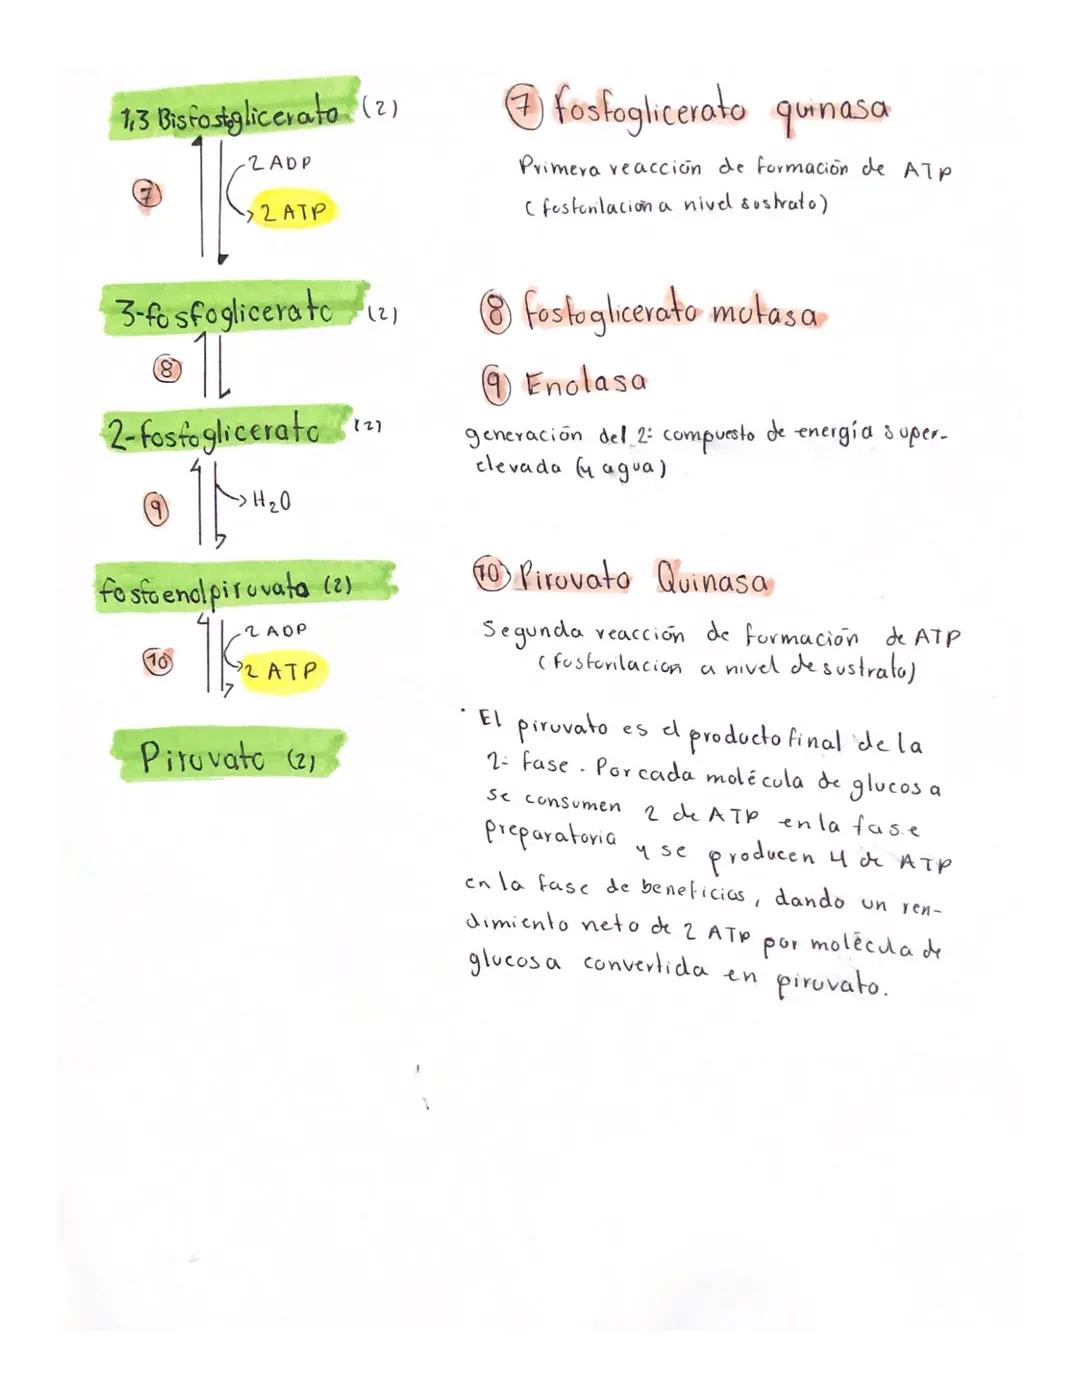 1,3 Bisfosfoglicerato (2)
7
2 ADP
2 ATP
3-fosfoglicerato (2)
8
2-fosfoglicerato (2)
9
H2O
fosfoenolpiruvato (2)
10
2 ADP
2 ATP
Piruvato (2)
7 fosfoglicerato quinasa
Primera reacción de formación de ATP
(fosforilacion a nivel sustrato)
8 fosfoglicerato mutasa
9 Enolasa
generación del 2º compuesto de energía super-
elevada (y agua)
10 Piruvato Quinasa
Segunda reacción de formación de ATP
(fosforilacion a nivel de sustrato)
· El piruvato es el producto final de la
2ª fase. Por cada molécula de glucosa
se consumen 2 de ATP en la fase
preparatoria y se producen 4 de ATP
en la fase de beneficios, dando un ren-
dimiento neto de 2 ATP por molécula de
glucosa convertida en piruvato.